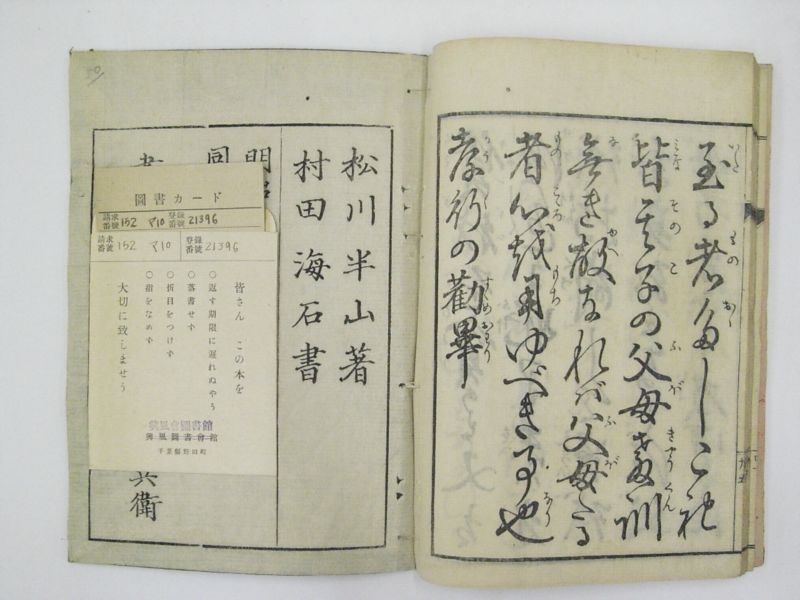 至る者多しこれ
皆其子の父母教訓
無き故なれば父母たる
者心を用ゆべき事也
孝行の勸畢
松川半山著
村田海石書
同
兵衛
圖書カード
請求番號 152 マ10 登録番號 21396
請求番號 152 マ10 登録番號 21396
皆さん この本を
○返す期限に遅れぬやう
○落書せず
○折目をつけず
○指をなめず
大切に致しませう
興風會圖書館
興風圖書會館
千葉縣野田町